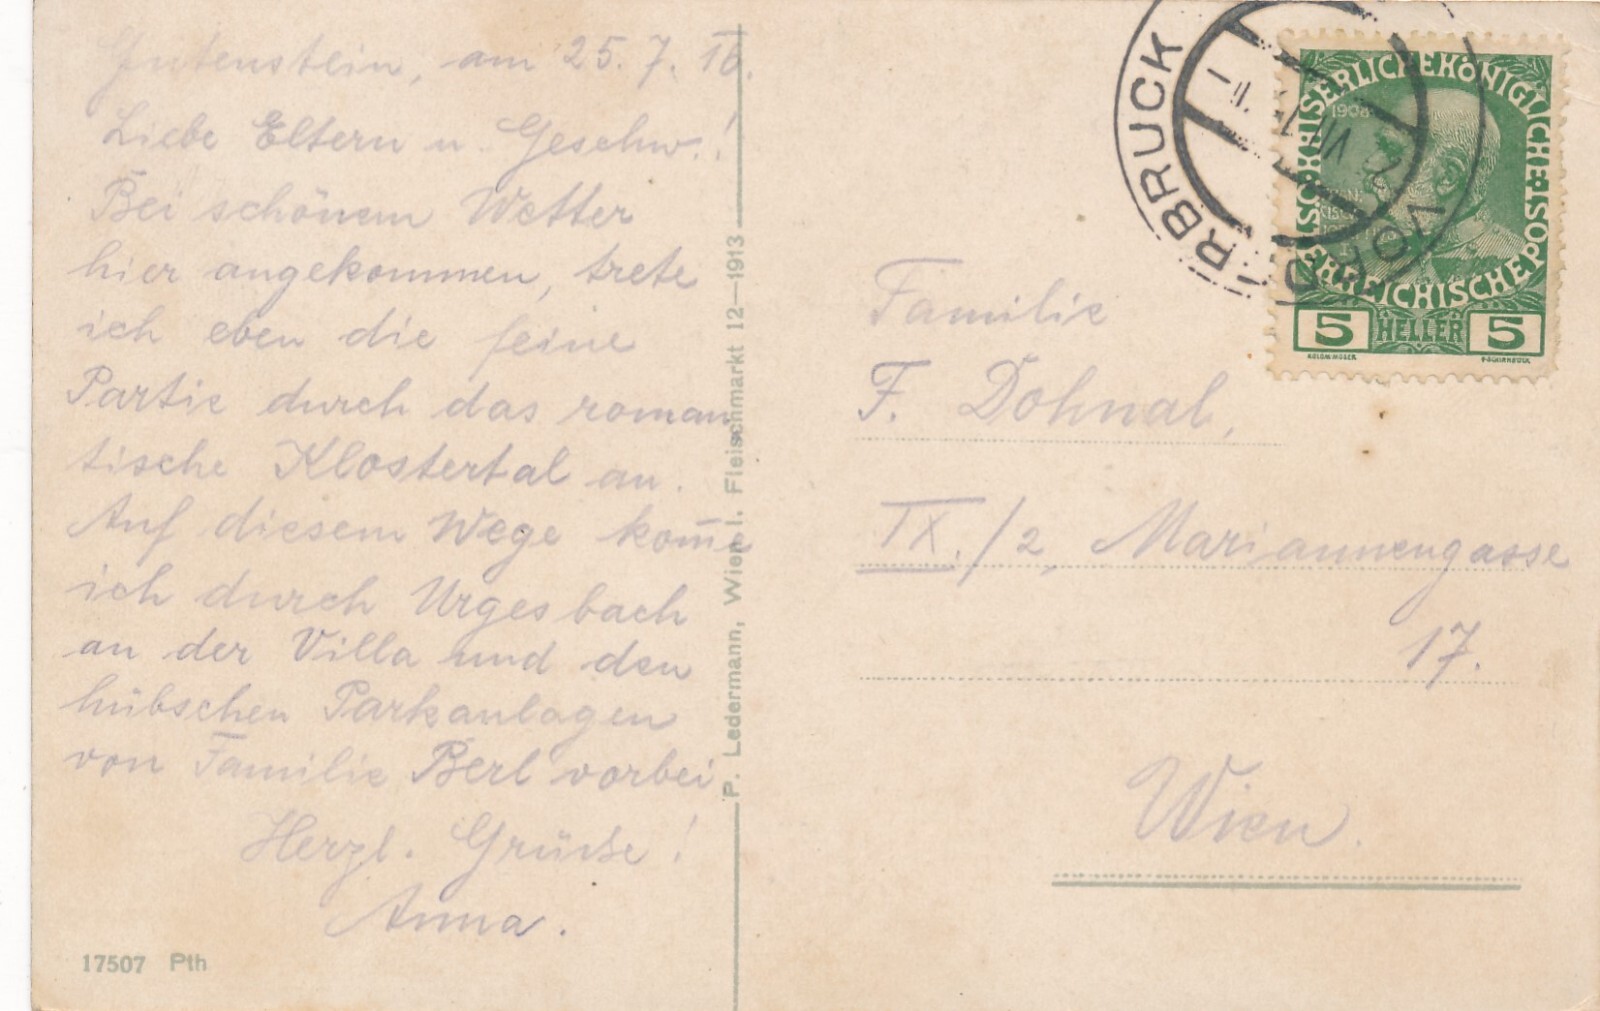 Gutenstein, am 25. 7. 16.
Liebe Eltern u. Geschw.!
Bei schönem Wetter
hier angekommen, trete
ich eben die feine
Partie durch das roman
tische Klostertal an.
Auf diesem Wege kom̅e
ich durch Urgesbach
an der Villa und den
hübschen Parkanlagen
von Familie Berl vorbei
Herzl. Grüsse!
Anna.
17507 Pth
P. Ledermann, Wien I. Fleischmarkt 12—1913
RBRUCK
KAISERLICHEKÖNIGLICHE
POST
1908
5 HELLER 5
Familie
F. Dohnal,
IX./2, Mariannengasse
17.
Wien.